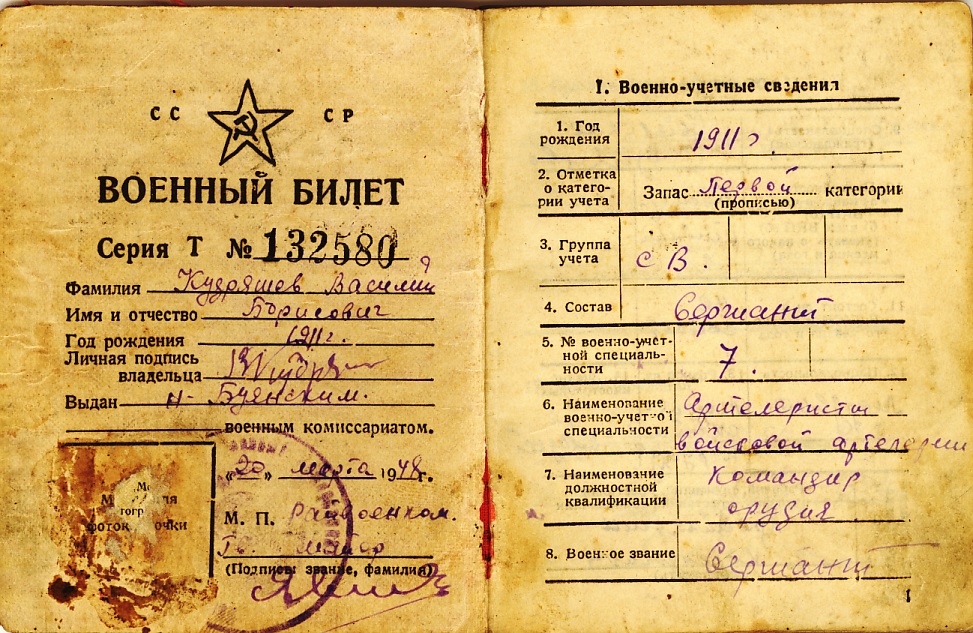 СС СР
ВОЕННЫЙ БИЛЕТ
Серия Т № 132580
Фамилия Кудряшев Василий
Имя и отчество Борисович
Год рождения 1911г.
Личная подпись
владельца
Выдан Н-Буянским.
военным комиссариатом.
«20» марта 1948г.
М. П. Райвоенком.
майор
(Подпись звание, фамилия)
I. Военно-учетные сведения
1. Год
рождения 1911г.
2. Отметка
о катего-
рии учета
Запас Первой категории
(прописью)
3. Группа
учета С В.
4. Состав Сержант
5. № военно-учет-
ной специаль-
ности 7.
6. Наименование
военно-учетной
специальности
Артелеристы
войсковой артелерии
7. Наименование
должностной
квалификации
Командир
орудия
8. Военное звание Сержант